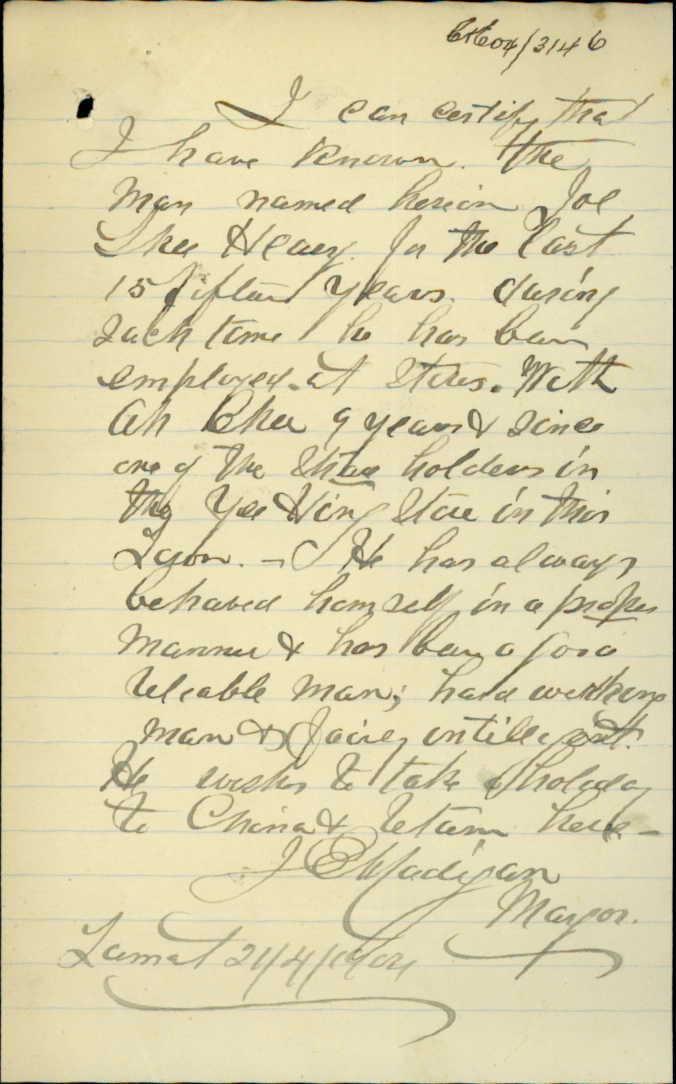 04/3146
I can certify that
I have known the
man named herein Joe
for the last
15 fifteen years. during
such time he has been
employed at Stores. With
Ah Chee 9 years & since
one of the Share holders in
the Yee Hing Store in this
Town. - He has always
behaved himself in a proper
manner & has been a good
reliable man; hard working
man & fairly
He wishes to take a holiday
to China & return here -
J E Madigan
Mayor.
21/4/1904